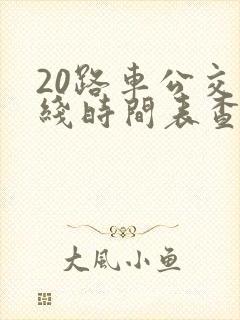 20路车公交
綫時間表查
大風小魚